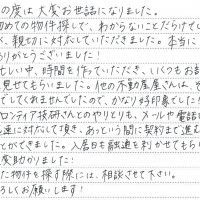 の度は大変お世話になりました。
初めての物件探しで、わからないことだらけでし
く、親切に対応していただきました。本当に
りがとうございました!
忙しい中、時間を作っていただき、いくつもお
見せてもらいました。他の不動産屋さんは、そ
でしてくれませんでしたので、かなり好印象でした
ロンティア技研さんとのやりとりも、メールや電話
速に対応して頂き、あっという間に契約まで進む
とができました。入居日も融通を利かせてもら
変助かりました!
た物件を探す際には、相談させて下さい。
ろしくお願いします!